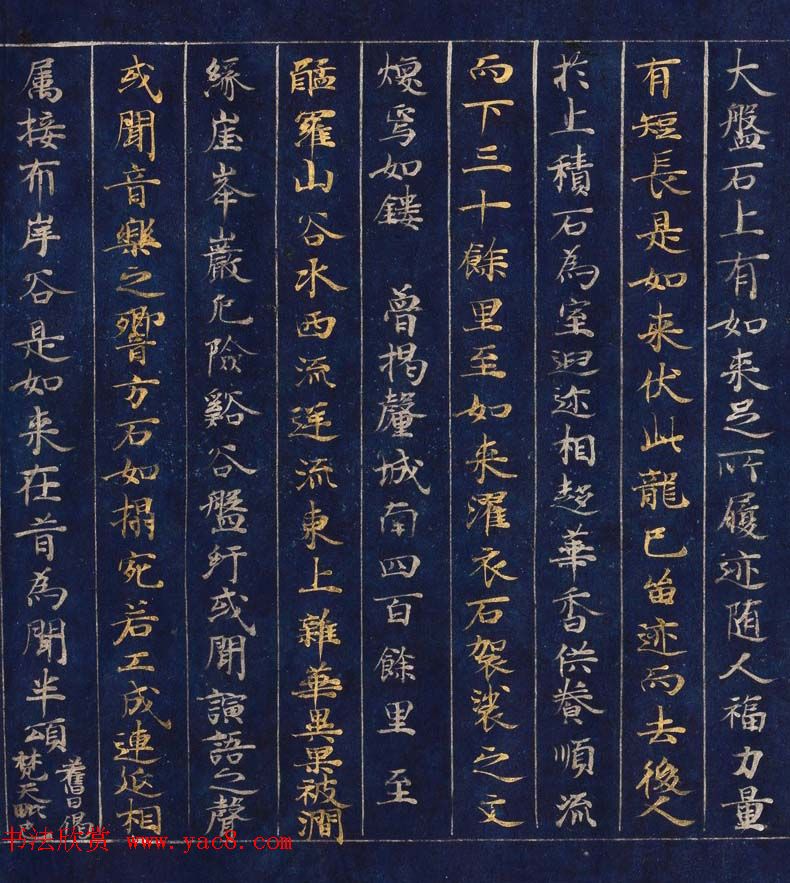 大盤石上有如来足所履迹随人福力量
有短長是如来伏此龍已留迹而去後人
於上積石為室遐迩相趍華香供養順流
而下三十餘里至如来濯衣石袈裟之文
煥焉如鏤　瞢揭釐城南四百餘里至
醯羅山谷水西流逆流東上雜華異果被澗
緣崖峯巖危險谿谷盤紆或聞諠語之聲
或聞音樂之響方石如榻宛若工成連延相
属接布岸谷是如来在昔為聞半頌
舊曰偈
梵天略也
书法欣赏 www.yac8.com